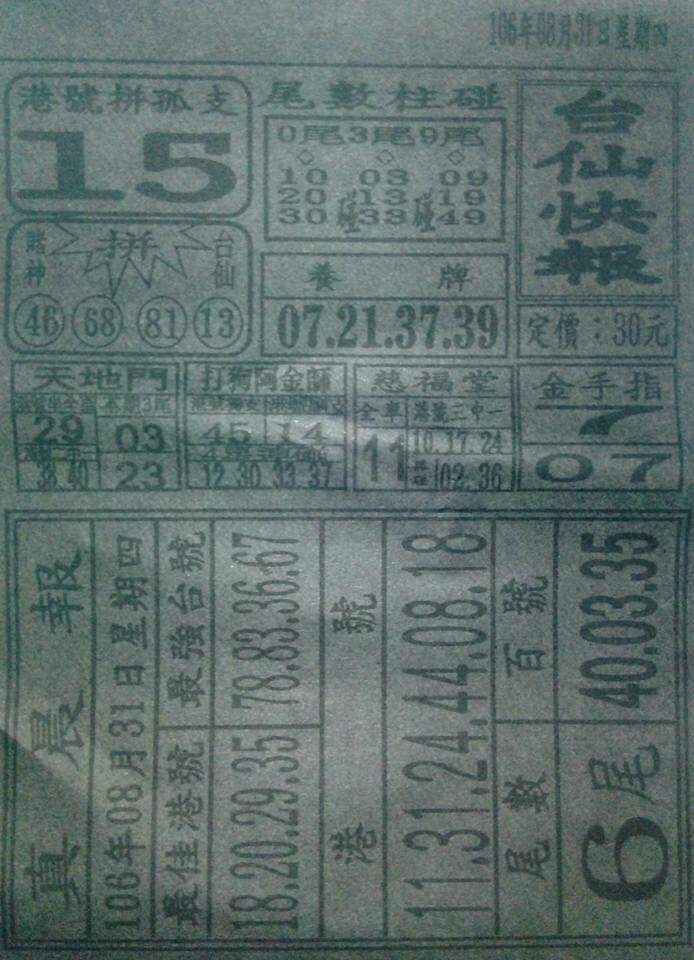 106年08月31日星期四
港號拼孤支
15
尾數柱碰
0尾3尾9尾
10 03 09
20 13 19
30 33 49
碰 碰
台仙快報
定價：30元
賭神 拼 台仙
46 68 81 13
養 牌
07.21.37.39
天地門
本期3尾
29 03
38.40 23
打狗阿金師
45 14
12 30 33 37
慈福堂
全車 港號三中一
11 10.17.24
02.36
金手指
7
07
真晨報
106年08月31日星期四
最佳港號 最強台號
18.20.29.35 78.83.36.67
港號
11.31.24.44.08.18
尾數 百號
6尾 40.03.35